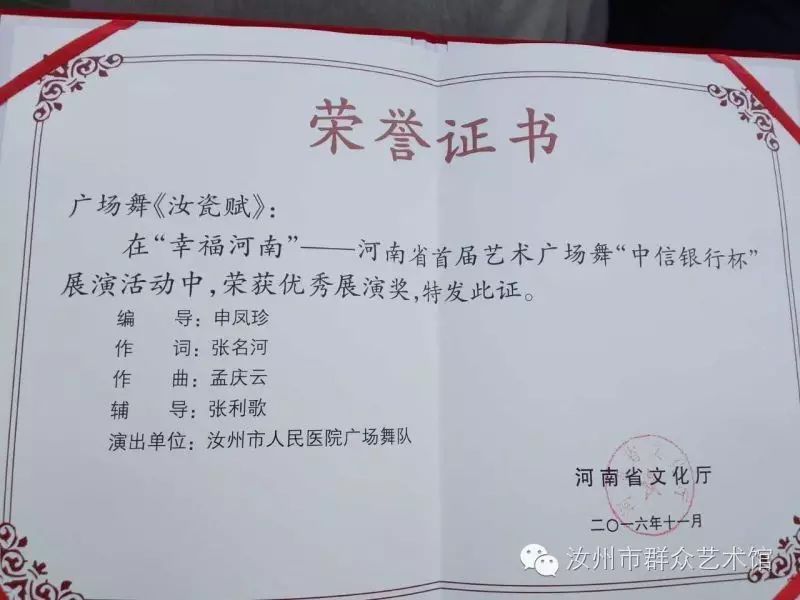 荣誉证书
广场舞《汝瓷赋》：
在“幸福河南”——河南省首届艺术广场舞“中信银行杯”
展演活动中，荣获优秀展演奖，特发此证。
编　　导：申凤珍
作　　词：张名河
作　　曲：孟庆云
辅　　导：张利歌
演出单位：汝州市人民医院广场舞队
河南省文化厅
二〇一六年十一月
汝州市群众艺术馆